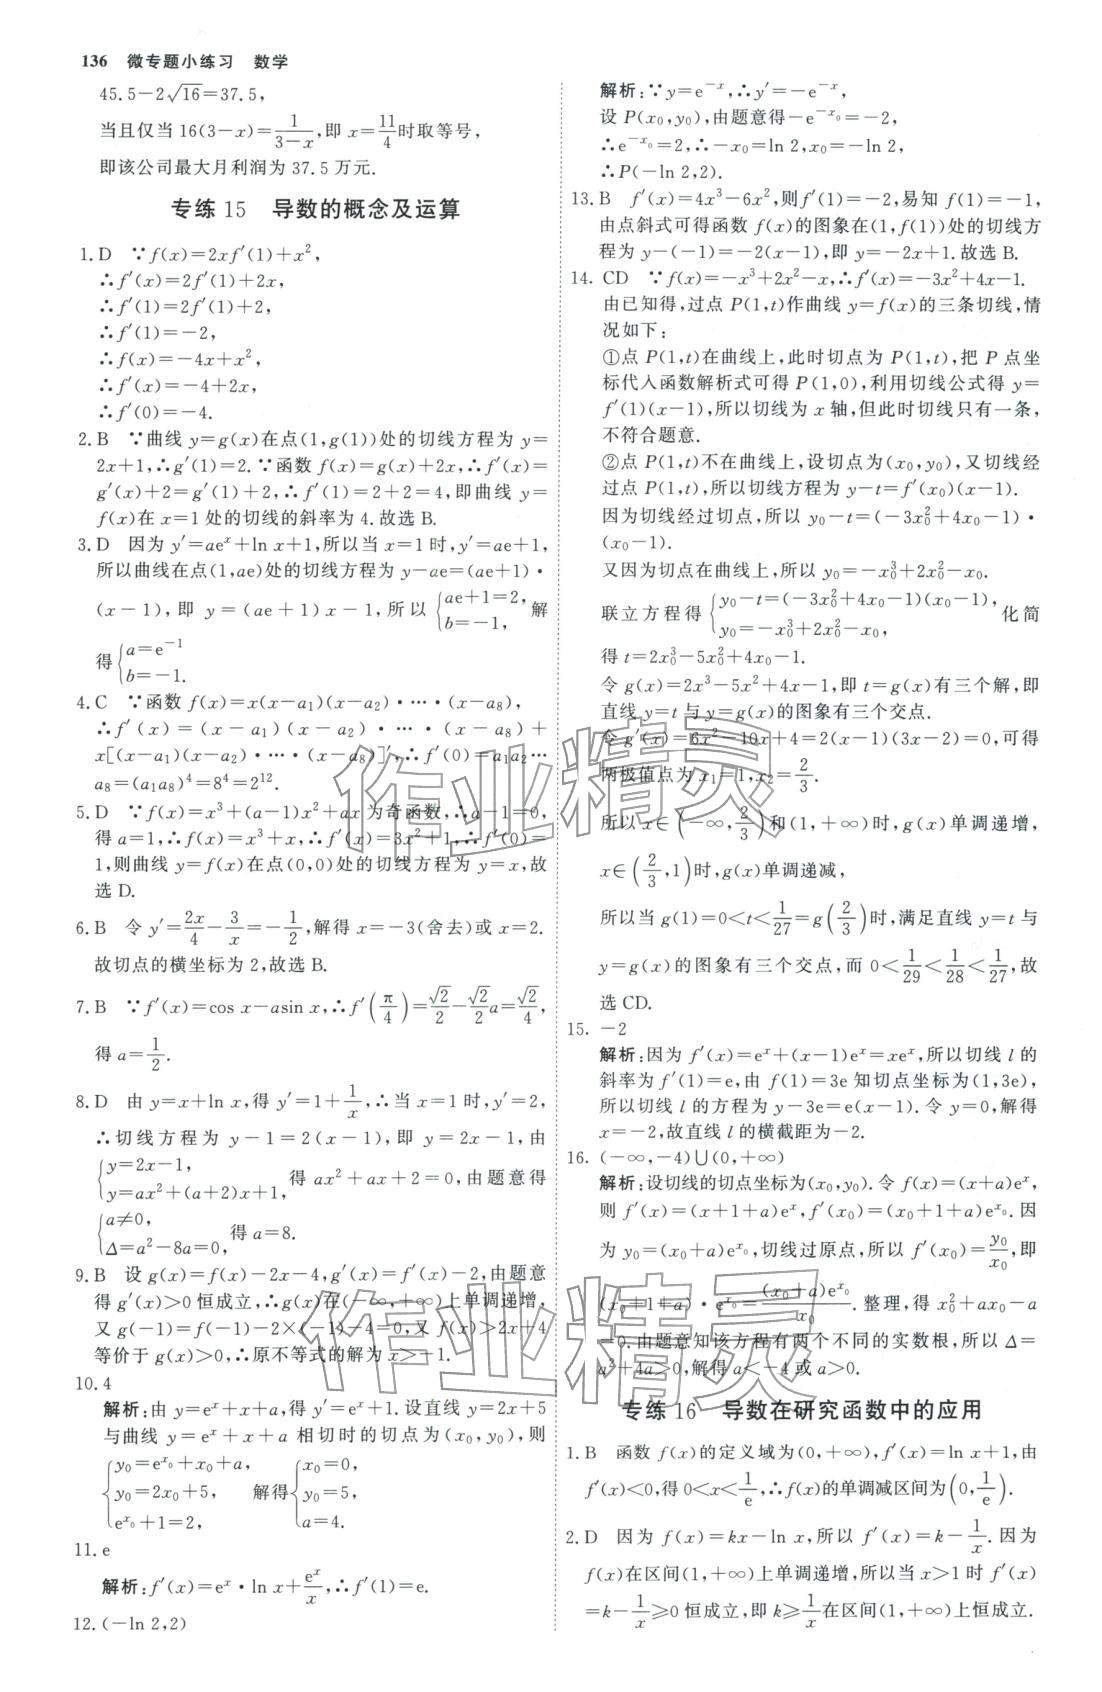 136 微专题小练习 数学
45.5－2√16＝37.5，
当且仅当 16(3－x)＝1/(3－x)，即 x＝11/4时取等号，
即该公司最大月利润为 37.5 万元.
专练 15 导数的概念及运算
1. D ∵f(x)＝2xf′(1)＋x²，
∴f′(x)＝2f′(1)＋2x，
∴f′(1)＝2f′(1)＋2，
∴f′(1)＝－2，
∴f(x)＝－4x＋x²，
∴f′(x)＝－4＋2x，
∴f′(0)＝－4.
2. B ∵曲线 y＝g(x)在点(1,g(1))处的切线方程为 y＝
2x＋1，∴g′(1)＝2.∵函数 f(x)＝g(x)＋2x，∴f′(x)＝
g′(x)＋2＝g′(1)＋2，∴f′(1)＝2＋2＝4，即曲线 y＝
f(x)在 x＝1 处的切线的斜率为 4.故选 B.
3. D 因为 y′＝aeˣ＋ln x＋1，所以当 x＝1 时，y′＝ae＋1，
所以曲线在点(1,ae)处的切线方程为 y－ae＝(ae＋1)·
(x－1)，即 y＝(ae＋1)x－1，所以{ae＋1＝2，b＝－1， 解
得{a＝e⁻¹ b＝－1.
4. C ∵函数 f(x)＝x(x－a₁)(x－a₂)·…·(x－a₈)，
∴f′(x)＝(x－a₁)(x－a₂)·…·(x－a₈)＋
x[(x－a₁)(x－a₂)·…·(x－a₈)]′，∴f′(0)＝a₁a₂…
a₈＝(a₁a₈)⁴＝8⁴＝2¹².
5. D ∵f(x)＝x³＋(a－1)x²＋ax 为奇函数，∴a－1＝0，
得 a＝1，∴f(x)＝x³＋x，∴f′(x)＝3x²＋1，∴f′(0)＝
1，则曲线 y＝f(x)在点(0,0)处的切线方程为 y＝x，故
选 D.
6. B 令 y′＝2x/4－3/x＝－1/2，解得 x＝－3(舍去)或 x＝2.
故切点的横坐标为 2，故选 B.
7. B ∵f′(x)＝cos x－asin x，∴f′(π/4)＝√2/2－√2/2a＝√2/4，
得 a＝1/2.
8. D 由 y＝x＋ln x，得 y′＝1＋1/x，∴当 x＝1 时，y′＝2，
∴切线方程为 y－1＝2(x－1)，即 y＝2x－1，由
{y＝2x－1， y＝ax²＋(a＋2)x＋1， 得 ax²＋ax＋2＝0，由题意得
{a≠0， Δ＝a²－8a＝0， 得 a＝8.
9. B 设 g(x)＝f(x)－2x－4，g′(x)＝f′(x)－2，由题意
得 g′(x)＞0 恒成立，∴g(x)在(－∞，＋∞)上单调递增，
又 g(－1)＝f(－1)－2×(－1)－4＝0，又 f(x)＞2x＋4
等价于 g(x)＞0，∴原不等式的解为 x＞－1.
10. 4
解析：由 y＝eˣ＋x＋a，得 y′＝eˣ＋1.设直线 y＝2x＋5
与曲线 y＝eˣ＋x＋a 相切时的切点为(x₀,y₀)，则
{y₀＝e^x₀＋x₀＋a， y₀＝2x₀＋5， e^x₀＋1＝2， 解得{x₀＝0， y₀＝5， a＝4.
11. e
解析：f′(x)＝eˣ·ln x＋eˣ/x，∴f′(1)＝e.
12. (－ln 2,2)
解析：∵y＝e⁻ˣ，∴y′＝－e⁻ˣ，
设 P(x₀,y₀)，由题意得－e^－x₀＝－2，
∴e^－x₀＝2，∴－x₀＝ln 2，x₀＝－ln 2，
∴P(－ln 2,2).
13. B f′(x)＝4x³－6x²，则 f′(1)＝－2，易知 f(1)＝－1，
由点斜式可得函数 f(x)的图象在(1,f(1))处的切线方
程为 y－(－1)＝－2(x－1)，即 y＝－2x＋1.故选 B.
14. CD ∵f(x)＝－x³＋2x²－x，∴f′(x)＝－3x²＋4x－1.
由已知得，过点 P(1,t)作曲线 y＝f(x)的三条切线，情
况如下：
①点 P(1,t)在曲线上，此时切点为 P(1,t)，把 P 点坐
标代入函数解析式可得 P(1,0)，利用切线公式得 y＝
f′(1)(x－1)，所以切线为 x 轴，但此时切线只有一条，
不符合题意.
②点 P(1,t)不在曲线上，设切点为(x₀,y₀)，又切线经
过点 P(1,t)，所以切线方程为 y－t＝f′(x₀)(x－1).
因为切线经过切点，所以 y₀－t＝(－3x₀²＋4x₀－1)·
(x₀－1).
又因为切点在曲线上，所以 y₀＝－x₀³＋2x₀²－x₀.
联立方程得{y₀－t＝(－3x₀²＋4x₀－1)(x₀－1)， y₀＝－x₀³＋2x₀²－x₀， 化简
得 t＝2x₀³－5x₀²＋4x₀－1.
令 g(x)＝2x³－5x²＋4x－1，即 t＝g(x)有三个解，即
直线 y＝t 与 y＝g(x)的图象有三个交点.
令 g′(x)＝6x²－10x＋4＝2(x－1)(3x－2)＝0，可得
两极值点为 x₁＝1，x₂＝2/3.
所以 x∈(－∞，2/3)和(1，＋∞)时，g(x)单调递增，
x∈(2/3，1)时，g(x)单调递减，
所以当 g(1)＝0＜t＜1/27＝g(2/3)时，满足直线 y＝t 与
y＝g(x)的图象有三个交点，而 0＜1/29＜1/28＜1/27，故
选 CD.
15. －2
解析：因为 f′(x)＝eˣ＋(x－1)eˣ＝xeˣ，所以切线 l 的
斜率为 f′(1)＝e，由 f(1)＝3e 知切点坐标为(1,3e)，
所以切线 l 的方程为 y－3e＝e(x－1).令 y＝0，解得
x＝－2，故直线 l 的横截距为－2.
16. (－∞，－4)∪(0，＋∞)
解析：设切线的切点坐标为(x₀,y₀).令 f(x)＝(x＋a)eˣ，
则 f′(x)＝(x＋1＋a)eˣ，f′(x₀)＝(x₀＋1＋a)e^x₀.因
为 y₀＝(x₀＋a)e^x₀，切线过原点，所以 f′(x₀)＝y₀/x₀，即
(x₀＋1＋a)·e^x₀＝(x₀＋a)e^x₀/x₀.整理，得 x₀²＋ax₀－a
＝0.由题意知该方程有两个不同的实数根，所以 Δ＝
a²＋4a＞0，解得 a＜－4或 a＞0.
专练 16 导数在研究函数中的应用
1. B 函数 f(x)的定义域为(0，＋∞)，f′(x)＝ln x＋1，由
f′(x)＜0，得 0＜x＜1/e，∴f(x)的单调减区间为(0，1/e).
2. D 因为 f(x)＝kx－ln x，所以 f′(x)＝k－1/x.因为
f(x)在区间(1，＋∞)上单调递增，所以当 x＞1 时 f′(x)
＝k－1/x≥0 恒成立，即 k≥1/x在区间(1，＋∞)上恒成立.
作业精灵
作业精灵